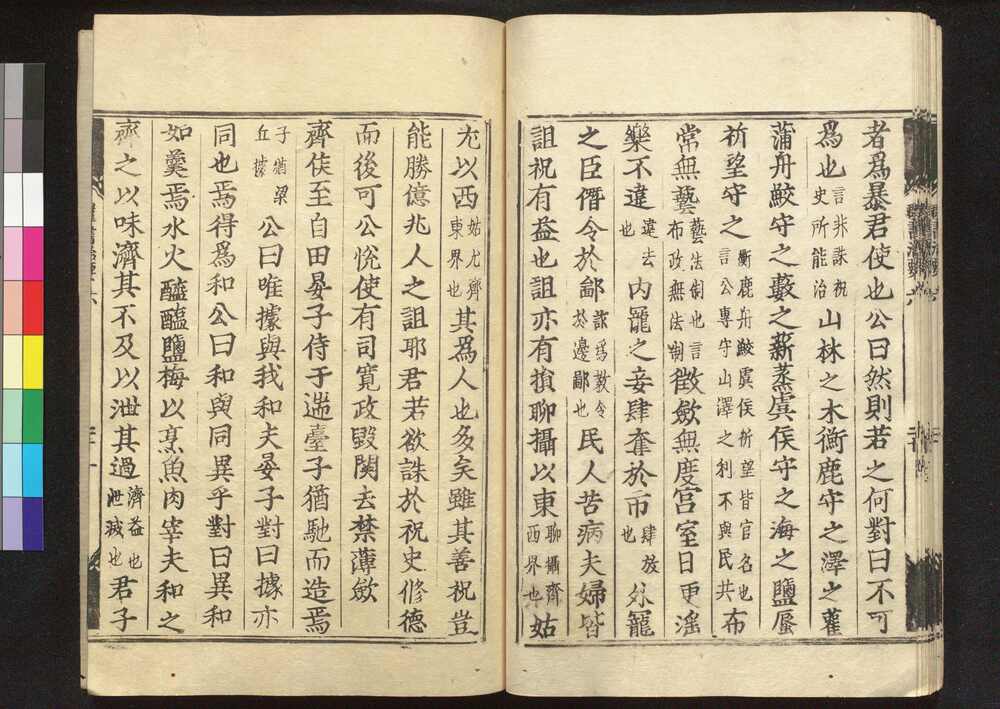 者爲暴君使也公曰然則若之何對曰不可
爲也言非誅祝史所能治山林之木衡鹿守之澤之萑
蒲舟鮫守之藪之薪蒸虞候守之海之鹽蜃
祈望守之衡鹿舟鮫虞候祈望皆官名也言公專守山澤之利不與民共布
常無藝藝法制也言布政無法制徵斂無度宮室日更淫
樂不違違去也內寵之妾肆奪於市肆放也外寵
之臣僭令於鄙詐爲教令於邊鄙也民人苦病夫婦皆
詛祝有益也詛亦有損聊攝以東聊攝齊西界也姑
尤以西姑尤齊東界也其爲人也多矣雖其善祝豈
能勝億兆人之詛耶君若欲誅於祝史修德
而後可公悅使有司寬政毀関去禁薄斂
齊侯至自田晏子侍于遄臺子猶馳而造焉
子猶梁丘據公曰唯據與我和夫晏子對曰據亦
同也焉得爲和公曰和與同異乎對曰異和
如羹焉水火醯醢鹽梅以烹魚肉宰夫和之
齊之以味濟其不及以泄其過濟益也泄減也君子